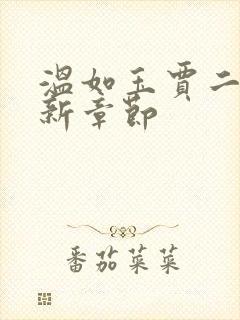 温如玉贾二
新章节
番茄菜菜